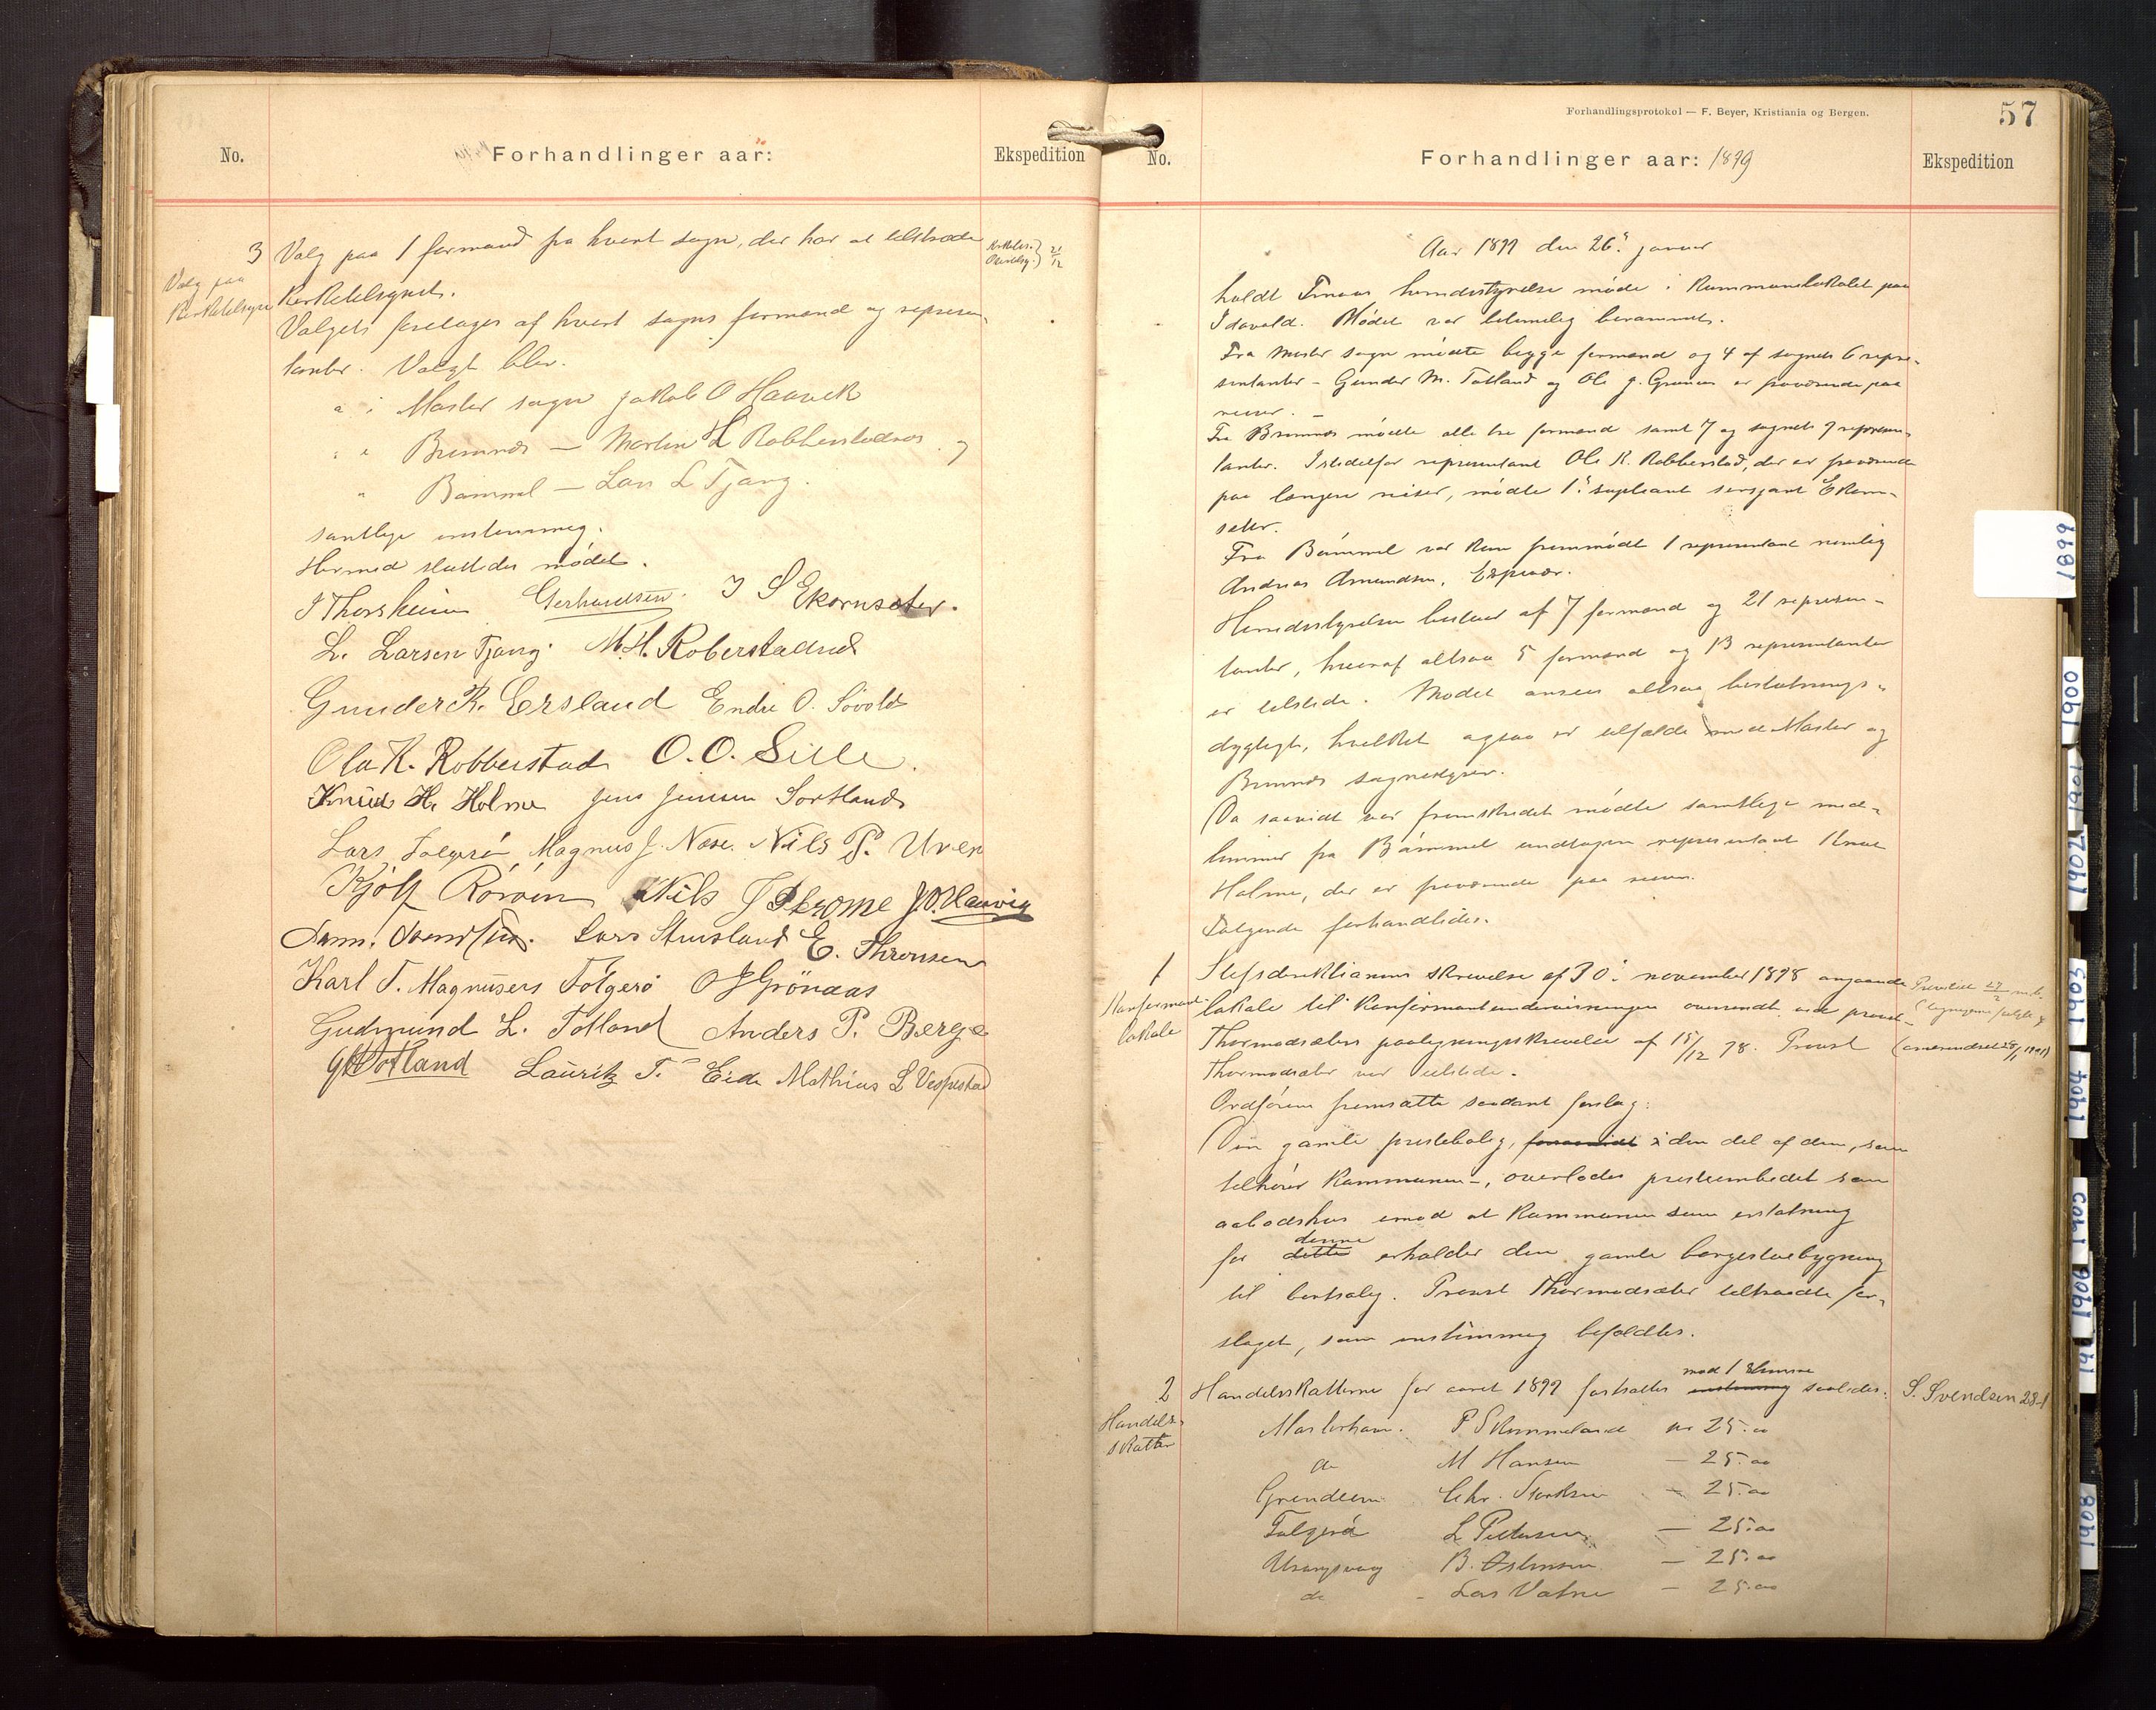 No.
Forhandlinger aar:
Ekspedition
3
Valg paa 1 formand fra hvert sogn, der har at tiltræde
Valg paa
kirketilsyn
kirketilsynet.
Valgets foretages af hvert sogns formænd og represen-
tanter. Valgt blev.
i Moster sogn Jakob O Haavik
" " Bremnes — Martin H Robberstadnes og
" Bømmel — Lars L Tjong.
samtlige enstemmig.
Hermed sluttedes mødet.
J Thorsheim Gerhardsen. J S Ekornsæter.
L. Larsen Tjong. M. H. Roberstadnes
Gunder R. Ersland Endre O. Søvold
Ola K. Robberstad O. O. Sille.
Knud H. Holme Jens Jensen Sortland
Lars Folgerø Magnus J. Næse. Nils P. Uren
Kjølf Rørøen Nils J J. O. Haavig
Sam. Svendsen. Lars Stusland E. Thronsen
Karl T. Magnusers Folgerø O J Grönaas
Gudmund L. Totland Anders P. Berge
G M Totland Lauritz T. Eide Mathias L Vespestad
Forhandlingsprotokol — F. Beyer, Kristiania og Bergen.
57
No.
Forhandlinger aar: 1899
Ekspedition
Aar 1899 den 26. januar
holdt Finaas herredsstyrelse møde i kommunelokalet paa
Idavold. Mødet var lovmelig berammet.
Fra Moster sogn mødte begge formænd og 4 af sognets 6 repre-
sentanter – Gunder M. Totland og Ole J. Grønaas er fraværende paa
reiser. –
Fra Bremnes mødte alle tre formænd samt 7 og sognets 9 represen-
tanter. Istedetfor representant Ole K. Robberstad, der er fraværende
paa længere reiser, mødte 1. supleant sersjant Ekorn-
sæter.
Fra Bømmel var kun fremmødt 1 representant nemlig
Andreas Amundsen, Espevær.
Herredsstyrelsen bestaar af 7 formænd og 21 represen-
tanter, hvoraf altsaa 5 formænd og 13 representanter
er tilstede. Mødet ansees altsaa beslutnings-
dygtigt, hvilket ogsaa er tilfælde med Moster og
Bremnes sognestyrer.
Da saavidt var fremskredet mødte samtlige med-
lemmer fra Bømmel undtagen representant Knut
Holme, der er fraværende paa reiser.
Følgende forhandledes.
1
Stiftsdirektionens skrivelse af 30. november 1898 angaaende
Konfirmant-
lokale
lokale til konfirmantundervisningen oversendt ved provst
Thormodsæters paategningsskrivelse af 15/12 98. Provst
Thormodsæter var tilstede.
Ordføreren fremsatte saadant forslag:
Den gamle prestebolig, i den del af den, som
tilhører kommunen –, overlades presteembedet som
aabodshus imod at kommunen som erstatning
for dette denne erholder den gamle borgestuebygning
til bortsalg. Provst Thormodsæter tiltraadte for-
slaget, som enstemmig befaldtes.
2
Handels-
skatter
Handelsskatterne for aaret 1899 fastsattes enstemmig mod 1 stemme saaledes:
S. Svendsen 28-1
Mosterhavn. P S Rommeland kr 25.00
do M Hansen — 25.00
Grendeim Chr. Storksen — 25.00
Folgerø L Pedersen — 25.00
Urangsvaag B. Østensen — 25.00
do - Lars Vatne — 25.00
1899
1900
1901
1902
1903
1904
1905
1906
1908